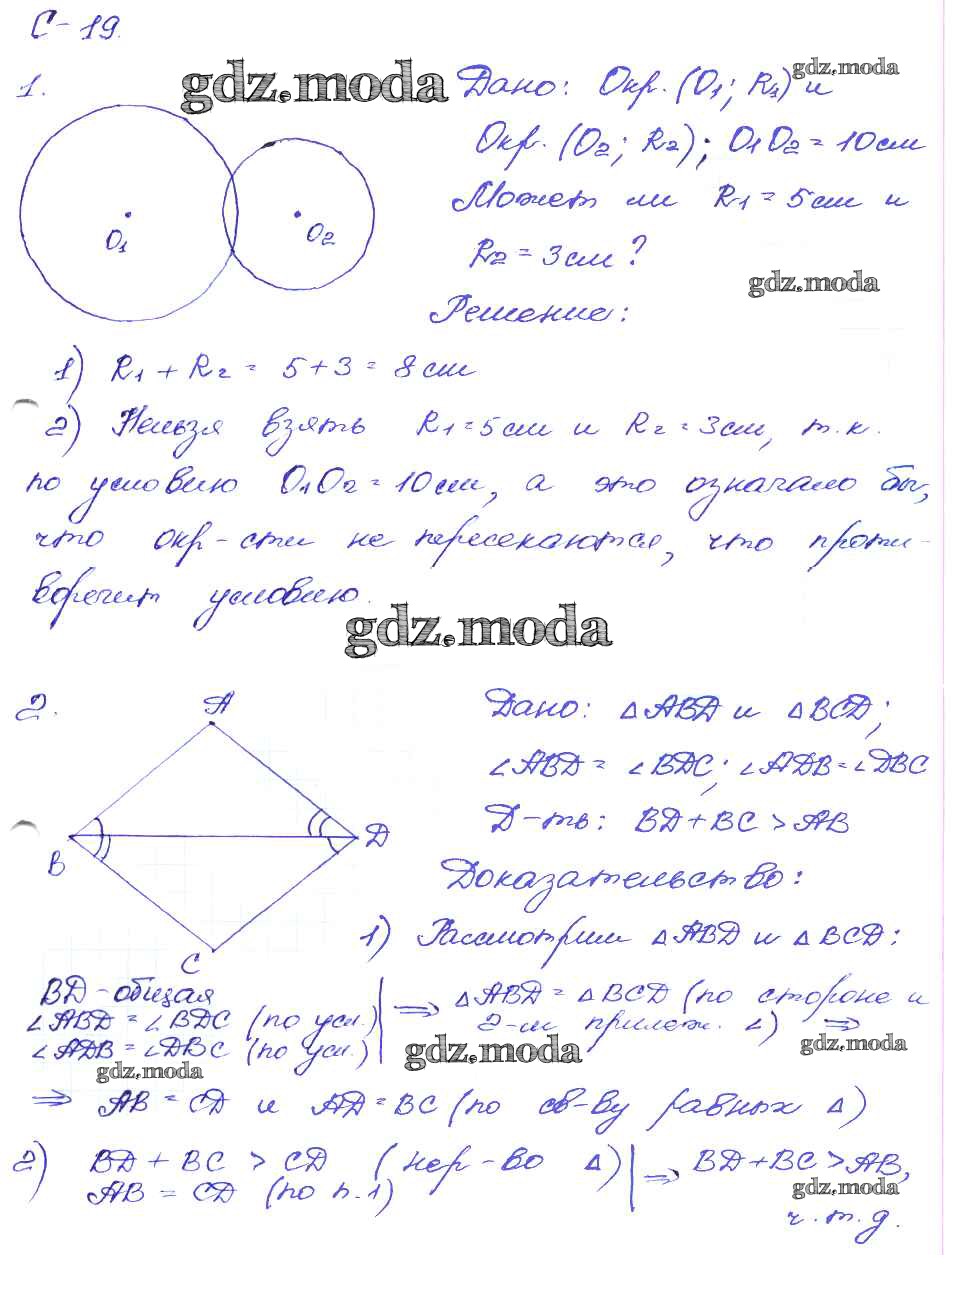 С-19.
1.
gdz.moda
Дано: Окр.(O₁; R₁) и
gdz.moda
Окр.(O₂; R₂); O₁O₂ = 10 см
Может ли R₁ = 5 см и
O₁
O₂
R₂ = 3 см?
gdz.moda
Решение:
1) R₁ + R₂ = 5 + 3 = 8 см
2) Нельзя взять R₁ = 5 см и R₂ = 3 см, т.к.
по условию O₁O₂ = 10 см, а это означало бы,
что окр-сти не пересекаются, что проти-
воречит условию.
gdz.moda
2.
A
Дано: △ABD и △BCD;
∠ABD = ∠BDC; ∠ADB = ∠DBC
Д-ть: BD + BC > AB
B
D
Доказательство:
C
1) Рассмотрим △ABD и △BCD:
BD - общая
∠ABD = ∠BDC (по усл.)
∠ADB = ∠DBC (по усл.)
⇒ △ABD = △BCD (по стороне и
2-м прилеж. ∠) ⇒
gdz.moda
gdz.moda
gdz.moda
⇒ AB = CD и AD = BC (по св-ву равных △)
2) BD + BC > CD (нер-во △)
AB = CD (по п.1)
⇒ BD + BC > AB,
gdz.moda
ч.т.д.